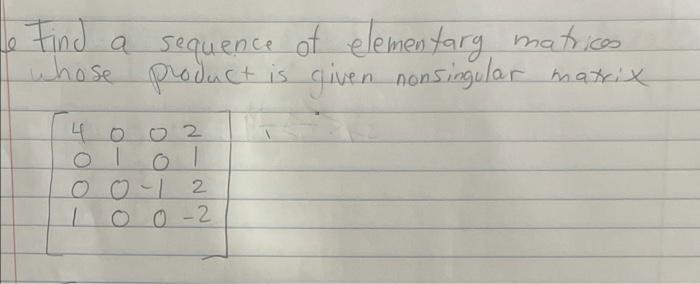 Find a sequence of elementary matrices
whose product is given nonsingular matrix
4 0 0 2
0 1 0 1
0 0 -1 2
1 0 0 -2